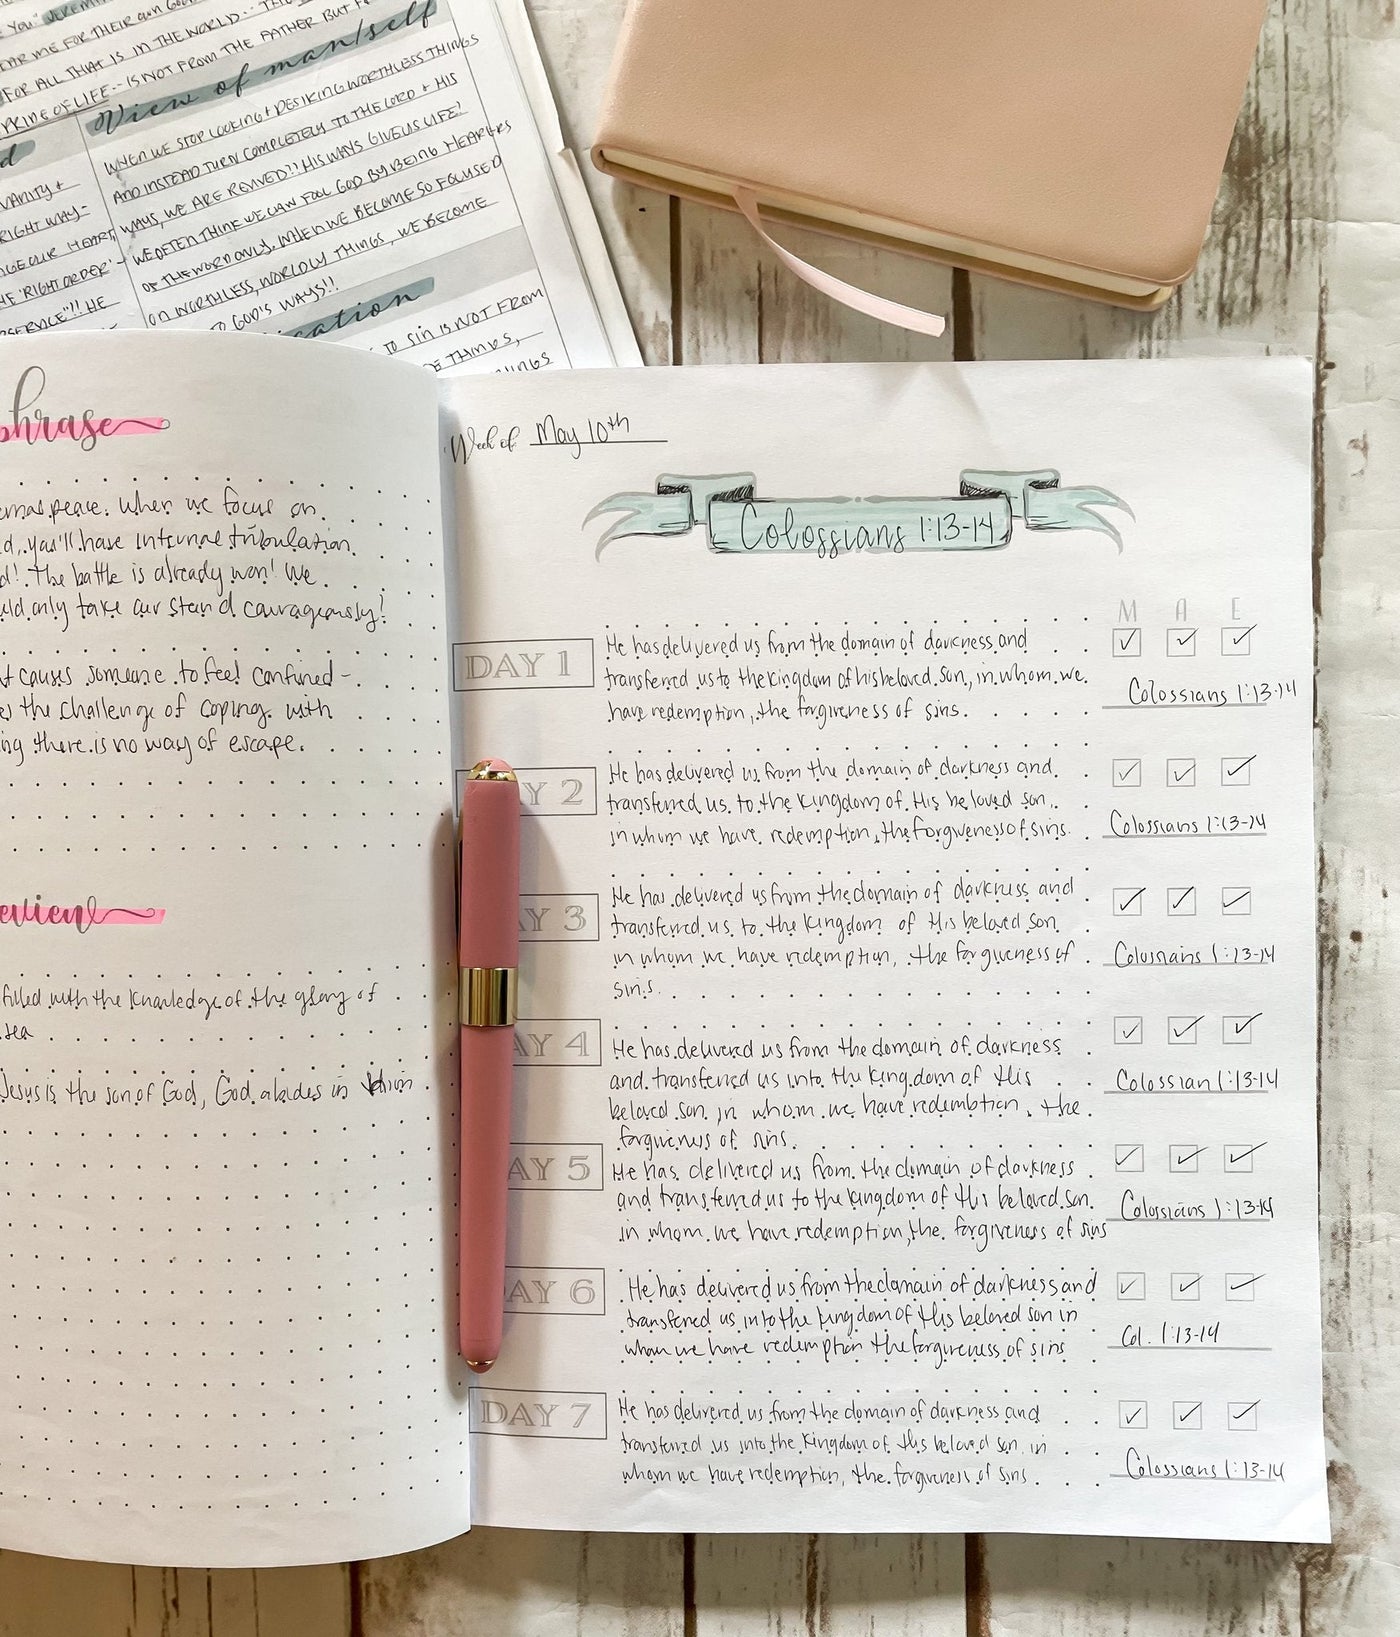 You" JEREMI
FOR THEIR OWN GOO
FOR ALL THAT IS IN THE WORLD -- THE
OF LIFE -- IS NOT FROM THE FATHER BUT F
View of man/self
WHEN WE STOP LOOKING + DESIRING WORTHLESS THINGS
AND INSTEAD TURN COMPLETELY TO THE LORD + HIS
WAYS, WE ARE REVIVED!! HIS WAYS GIVE US LIFE!
WE OFTEN THINK WE CAN FOOL GOD BY BEING HEARERS
OF THE WORD ONLY. WHEN WE BECOME SO FOCUSED
ON WORTHLESS, WORLDLY THINGS, WE BECOME
TO GOD'S WAYS!!
d
VANITY +
RIGHT WAY-
OUR HEART,
'RIGHT ORDER' -
HE
ication
TO SIN IS NOT FROM
OF THINGS,
phrase
peace. When we focus on
d, you'll have internal tribulation
d! The battle is already won! We
uld only take our stand courageously!
t causes someone to feel confined -
es the challenge of coping with
ing there is no way of escape.
eview
filled with the knowledge of the glory of
sea
Jesus is the son of God, God abides in him
Week of: May 10th
Colossians 1:13-14
M A E
DAY 1
He has delivered us from the domain of darkness and
transferred us to the kingdom of his beloved son, in whom we
have redemption, the forgiveness of sins.
Colossians 1:13-14
Y 2
He has delivered us from the domain of darkness and
transferred us to the kingdom of His beloved son,
in whom we have redemption, the forgiveness of sins.
Colossians 1:13-14
AY 3
He has delivered us from the domain of darkness and
transferred us to the kingdom of His beloved son
in whom we have redemption, the forgiveness of
sins.
Colossians 1:13-14
AY 4
He has delivered us from the domain of darkness
and transferred us into the kingdom of His
beloved son, in whom we have redemption, the
forgiveness of sins.
Colossian 1:13-14
AY 5
He has delivered us from the domain of darkness
and transferred us to the kingdom of His beloved son
in whom we have redemption, the forgiveness of sins
Colossians 1:13-14
DAY 6
He has delivered us from the domain of darkness and
transferred us into the kingdom of His beloved son in
whom we have redemption the forgiveness of sins
Col. 1:13-14
DAY 7
He has delivered us from the domain of darkness and
transferred us into the kingdom of His beloved son in
whom we have redemption, the forgiveness of sins.
Colossians 1:13-14